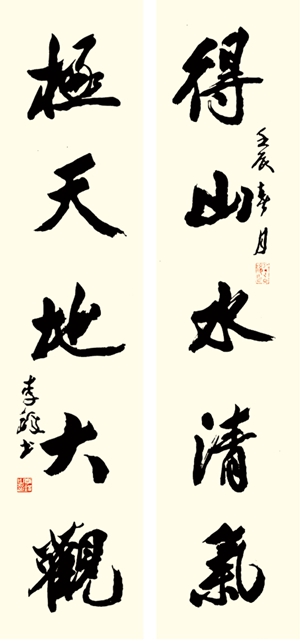 得山水清氣
壬辰春月
極天地大觀
李
書